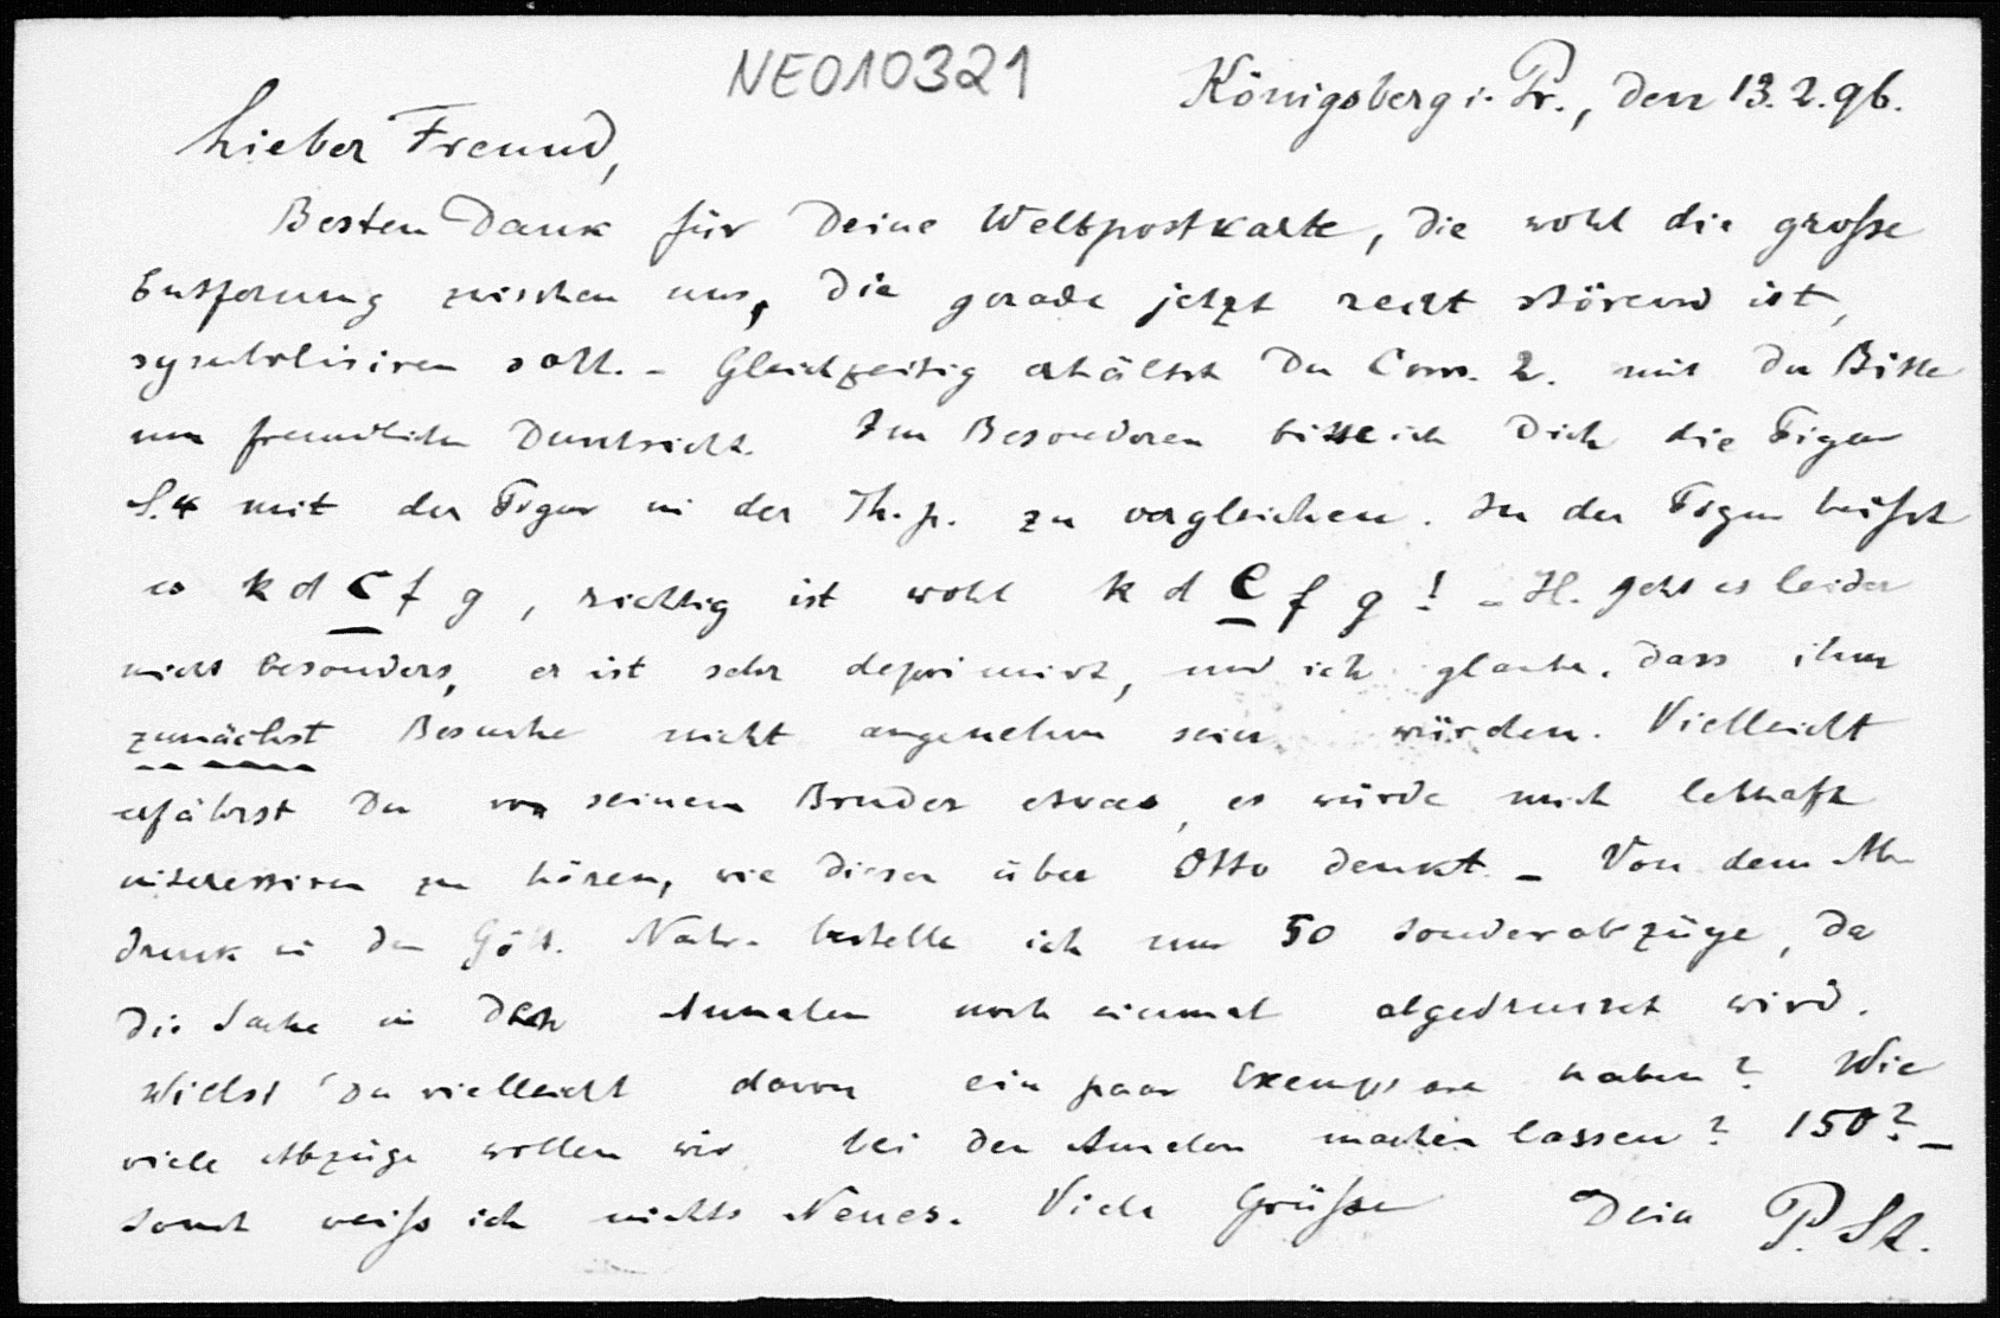 NE010321
Königsberg i. Pr., den 13.2.96.
Lieber Freund,
Besten Dank für Deine Weltpostkarte, die wohl die große
Entfernung zwischen uns, die gerade jetzt recht störend ist,
symbolisiren soll. - Gleichzeitig erhältst Du Corr. 2. mit der Bitte
um freundliche Durchsicht. Im Besonderen bitte ich Dich die Figur
S. 4 mit der Figur in der Th. p. zu vergleichen. In der Figur heißt
es k d c f g, richtig ist wohl k d e f g! - H. geht es leider
nicht besonders, er ist sehr deprimirt, und ich glaube, dass ihm
zunächst Besuche nicht angenehm sein würden. Vielleicht
erfährst Du von seinem Bruder etwas, es würde mich lebhaft
interessiren zu hören, wie dieser über Otto denkt. - Von dem Ab-
druck in den Gött. Nachr. bestelle ich nur 50 Sonderabzüge, da
die Sache in den Annalen noch einmal abgedruckt wird.
Willst Du vielleicht davon ein paar Exemplare haben? Wie
viele Abzüge wollen wir bei den Annalen machen lassen? 150? -
Sonst weiß ich nichts Neues. Viele Grüße Dein P. St.